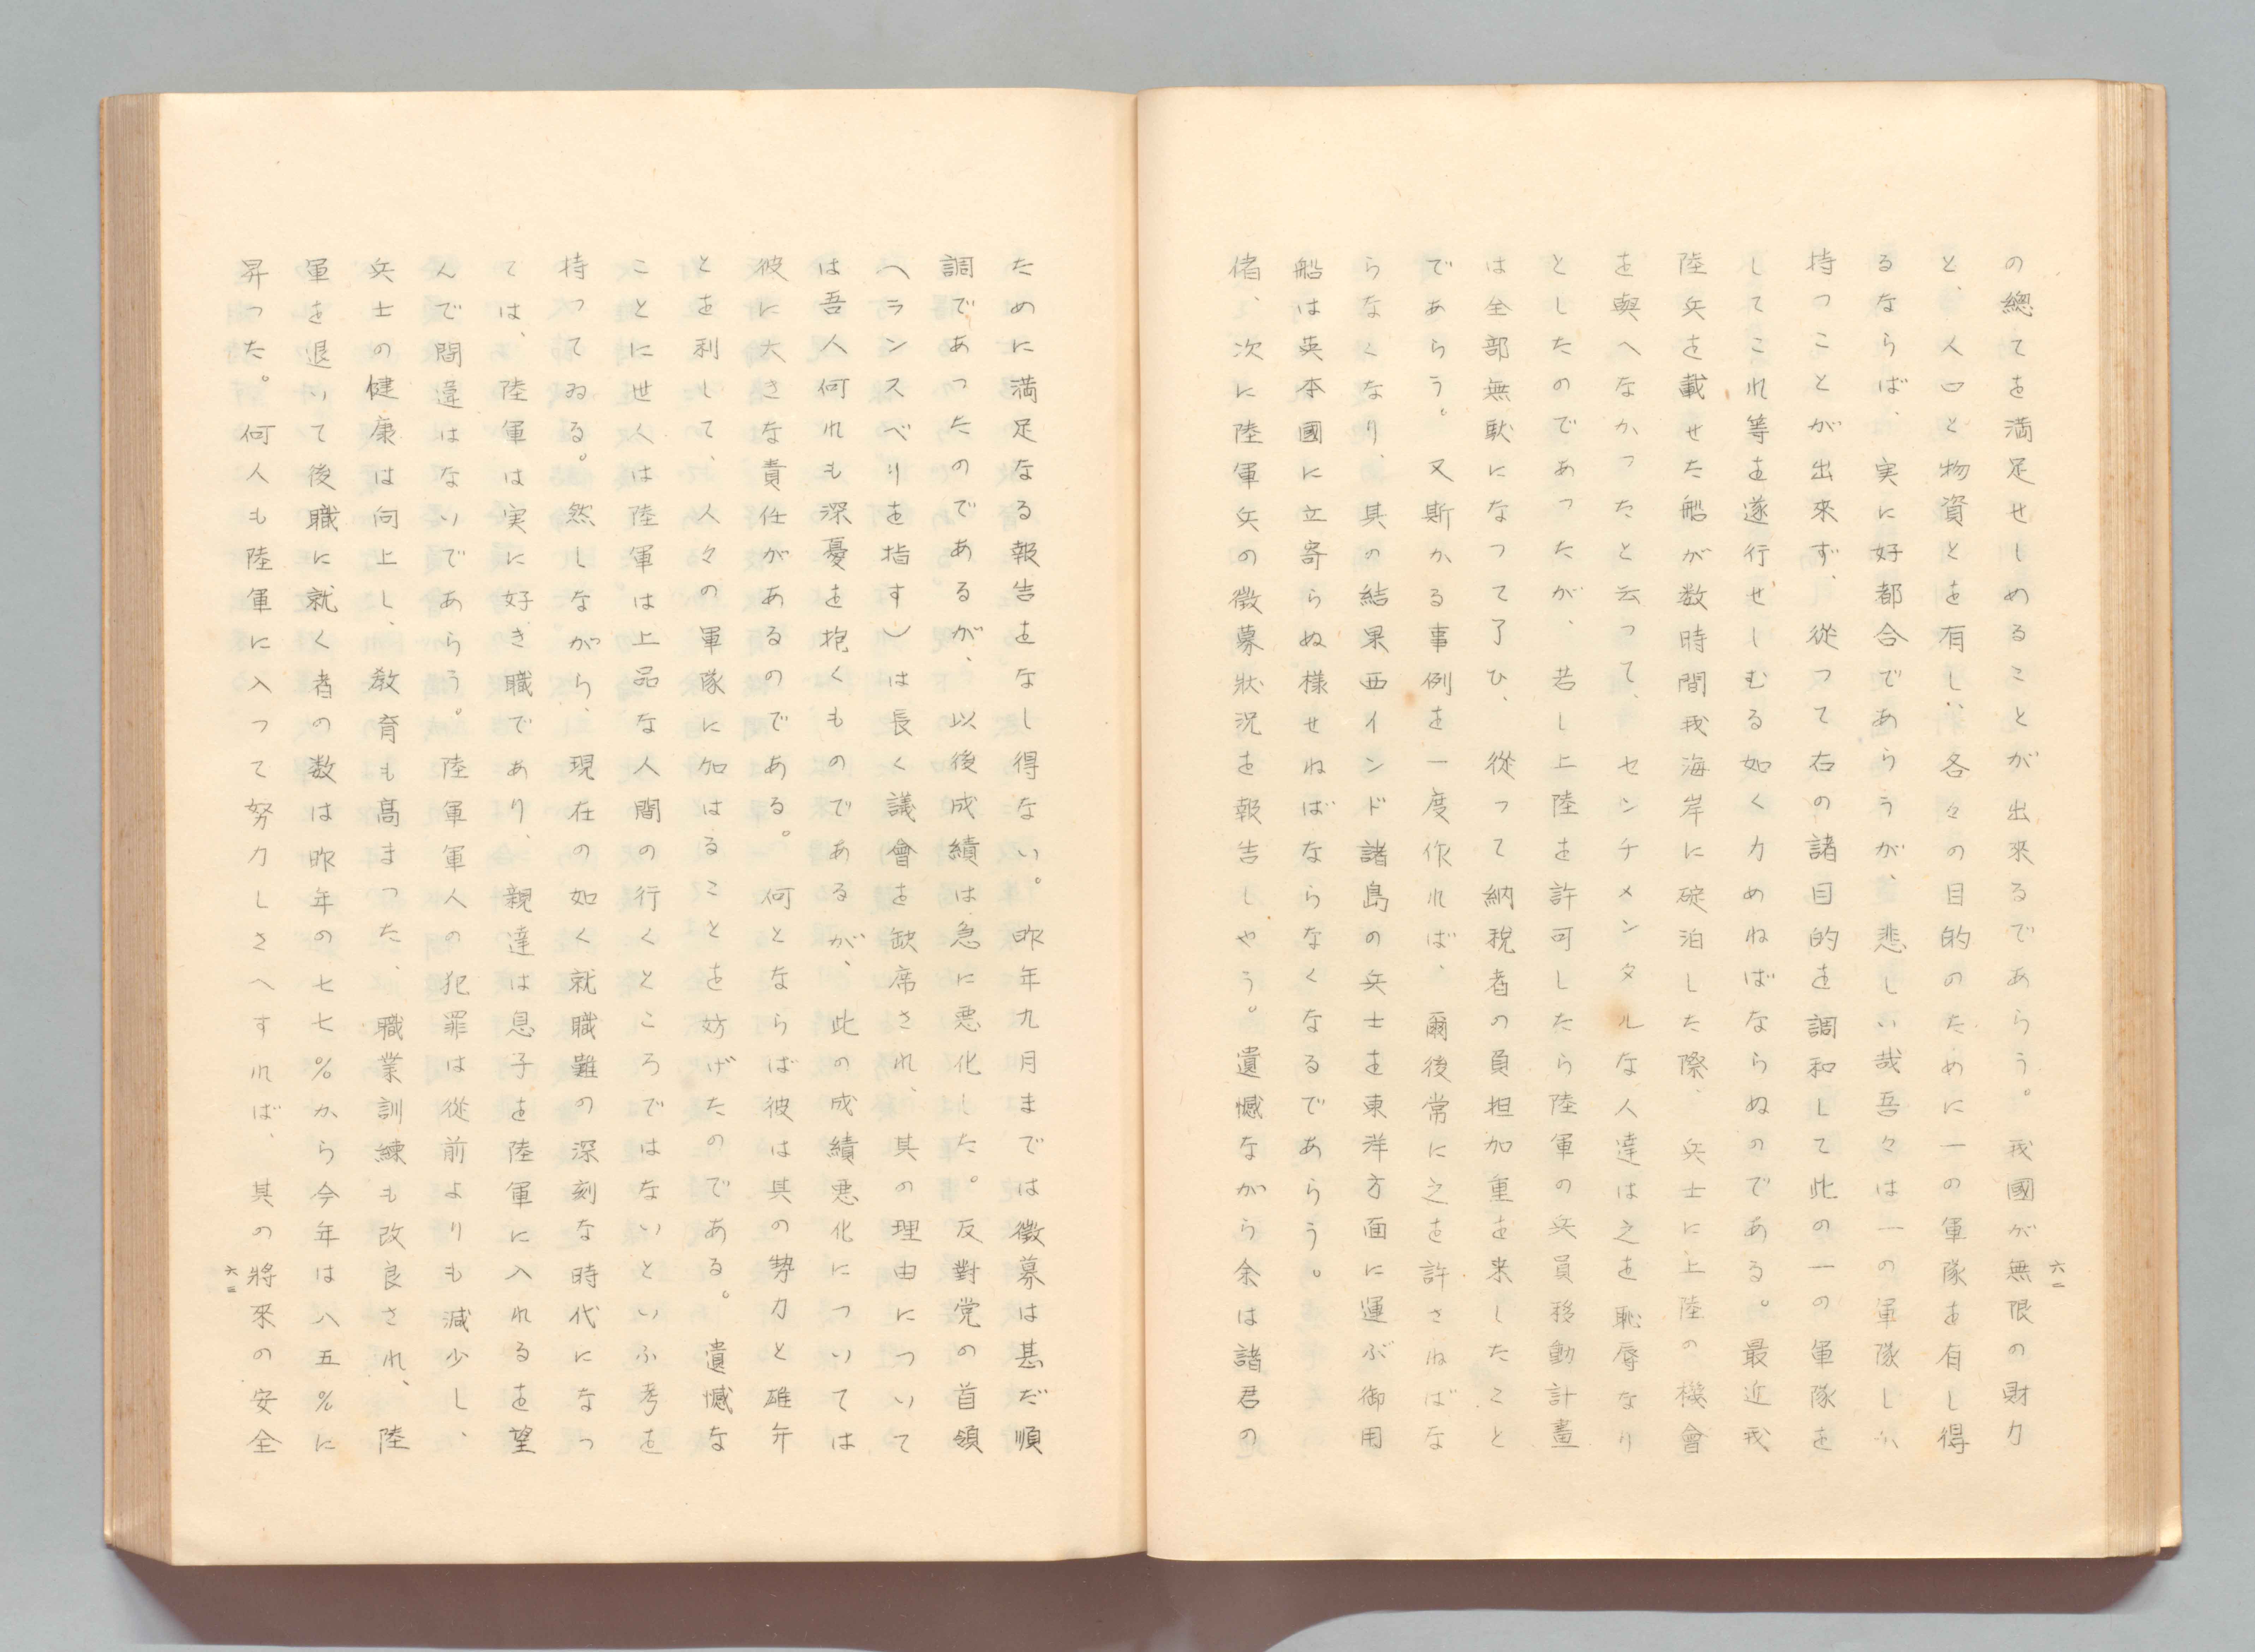 の總てを満足せしめることが出來るであらう。我國が無限の財力
と、人口と物資とを有し、各々の目的のために一の軍隊を有し得
るならば、実に好都合であらうが、悲しい哉吾々は一の軍隊しか
持つことが出來ず、從つて右の諸目的を調和して此の一の軍隊を
してこれ等を遂行せしむる如く力めねばならぬのである。最近我
陸兵を載せた船が数時間我海岸に碇泊した際、兵士に上陸の機會
を與へなかつたと云つて、センチメンタルな人達は之を恥辱なり
としたのであつたが、若し上陸を許可したら陸軍の兵員移動計畫
は全部無駄になつて了ひ、從つて納税者の負担加重を来したこと
であらう。又斯かる事例を一度作れば、爾後常に之を許さねばな
らなくなり、其の結果西インド諸島の兵士を東洋方面に運ぶ御用
船は英本國に立寄らぬ様せねばならなくなるであらう。
偖、次に陸軍兵の徴募狀況を報告しやう。遺憾ながら余は諸君の
六一
ために満足なる報告をなし得ない。昨年九月までは徴募は甚だ順
調であつたのであるが、以後成績は急に悪化した。反對党の首領
(ランスベリを指す)は長く議會を缺席され、其の理由について
は吾人何れも深憂を抱くものであるが、此の成績悪化については
彼に大きな責任があるのである。何とならば彼は其の勢力と雄弁
とを利して、人々の軍隊に加はることを妨げたのである。遺憾な
ことに世人は陸軍は上品な人間の行くところではないといふ考を
持つてゐる。然しながら、現在の如く就職難の深刻な時代になつ
ては、陸軍は実に好き職であり、親達は息子を陸軍に入れるを望
んで間違はないであらう。陸軍軍人の犯罪は從前よりも減少し、
兵士の健康は向上し、教育も高まつた、職業訓練も改良され、陸
軍を退いて後職に就く者の数は昨年の七七%から今年は八五%に
昇つた。何人も陸軍に入つて努力しさへすれば、其の將來の安全
六二